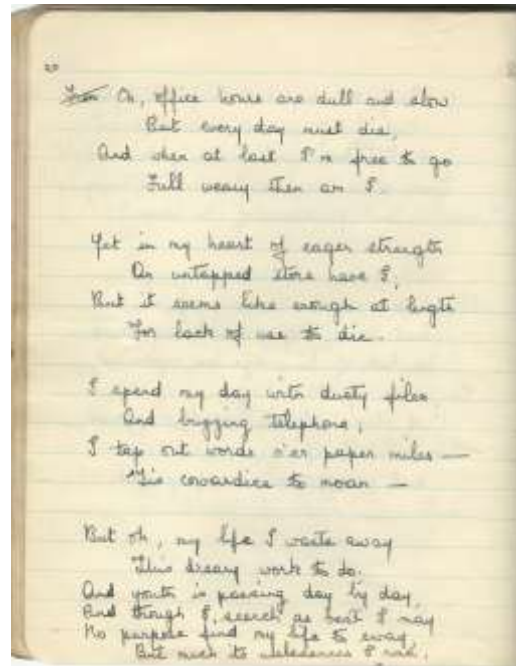 20
Oh, office hours are dull and slow
But every day must die,
And when at last I'm free to go
Full weary then am I.
Yet in my heart of eager strength
An untapped store have I,
But it seems like enough at length
For lack of use to die.
I spend my day with dusty files
And buzzing telephone,
I tap out words o'er paper miles —
'Tis cowardice to moan —
But oh, my life I waste away
This dreary work to do.
And youth is passing day by day,
And though I search as best I may
No purpose find my life to sway,
But much to uselessness I